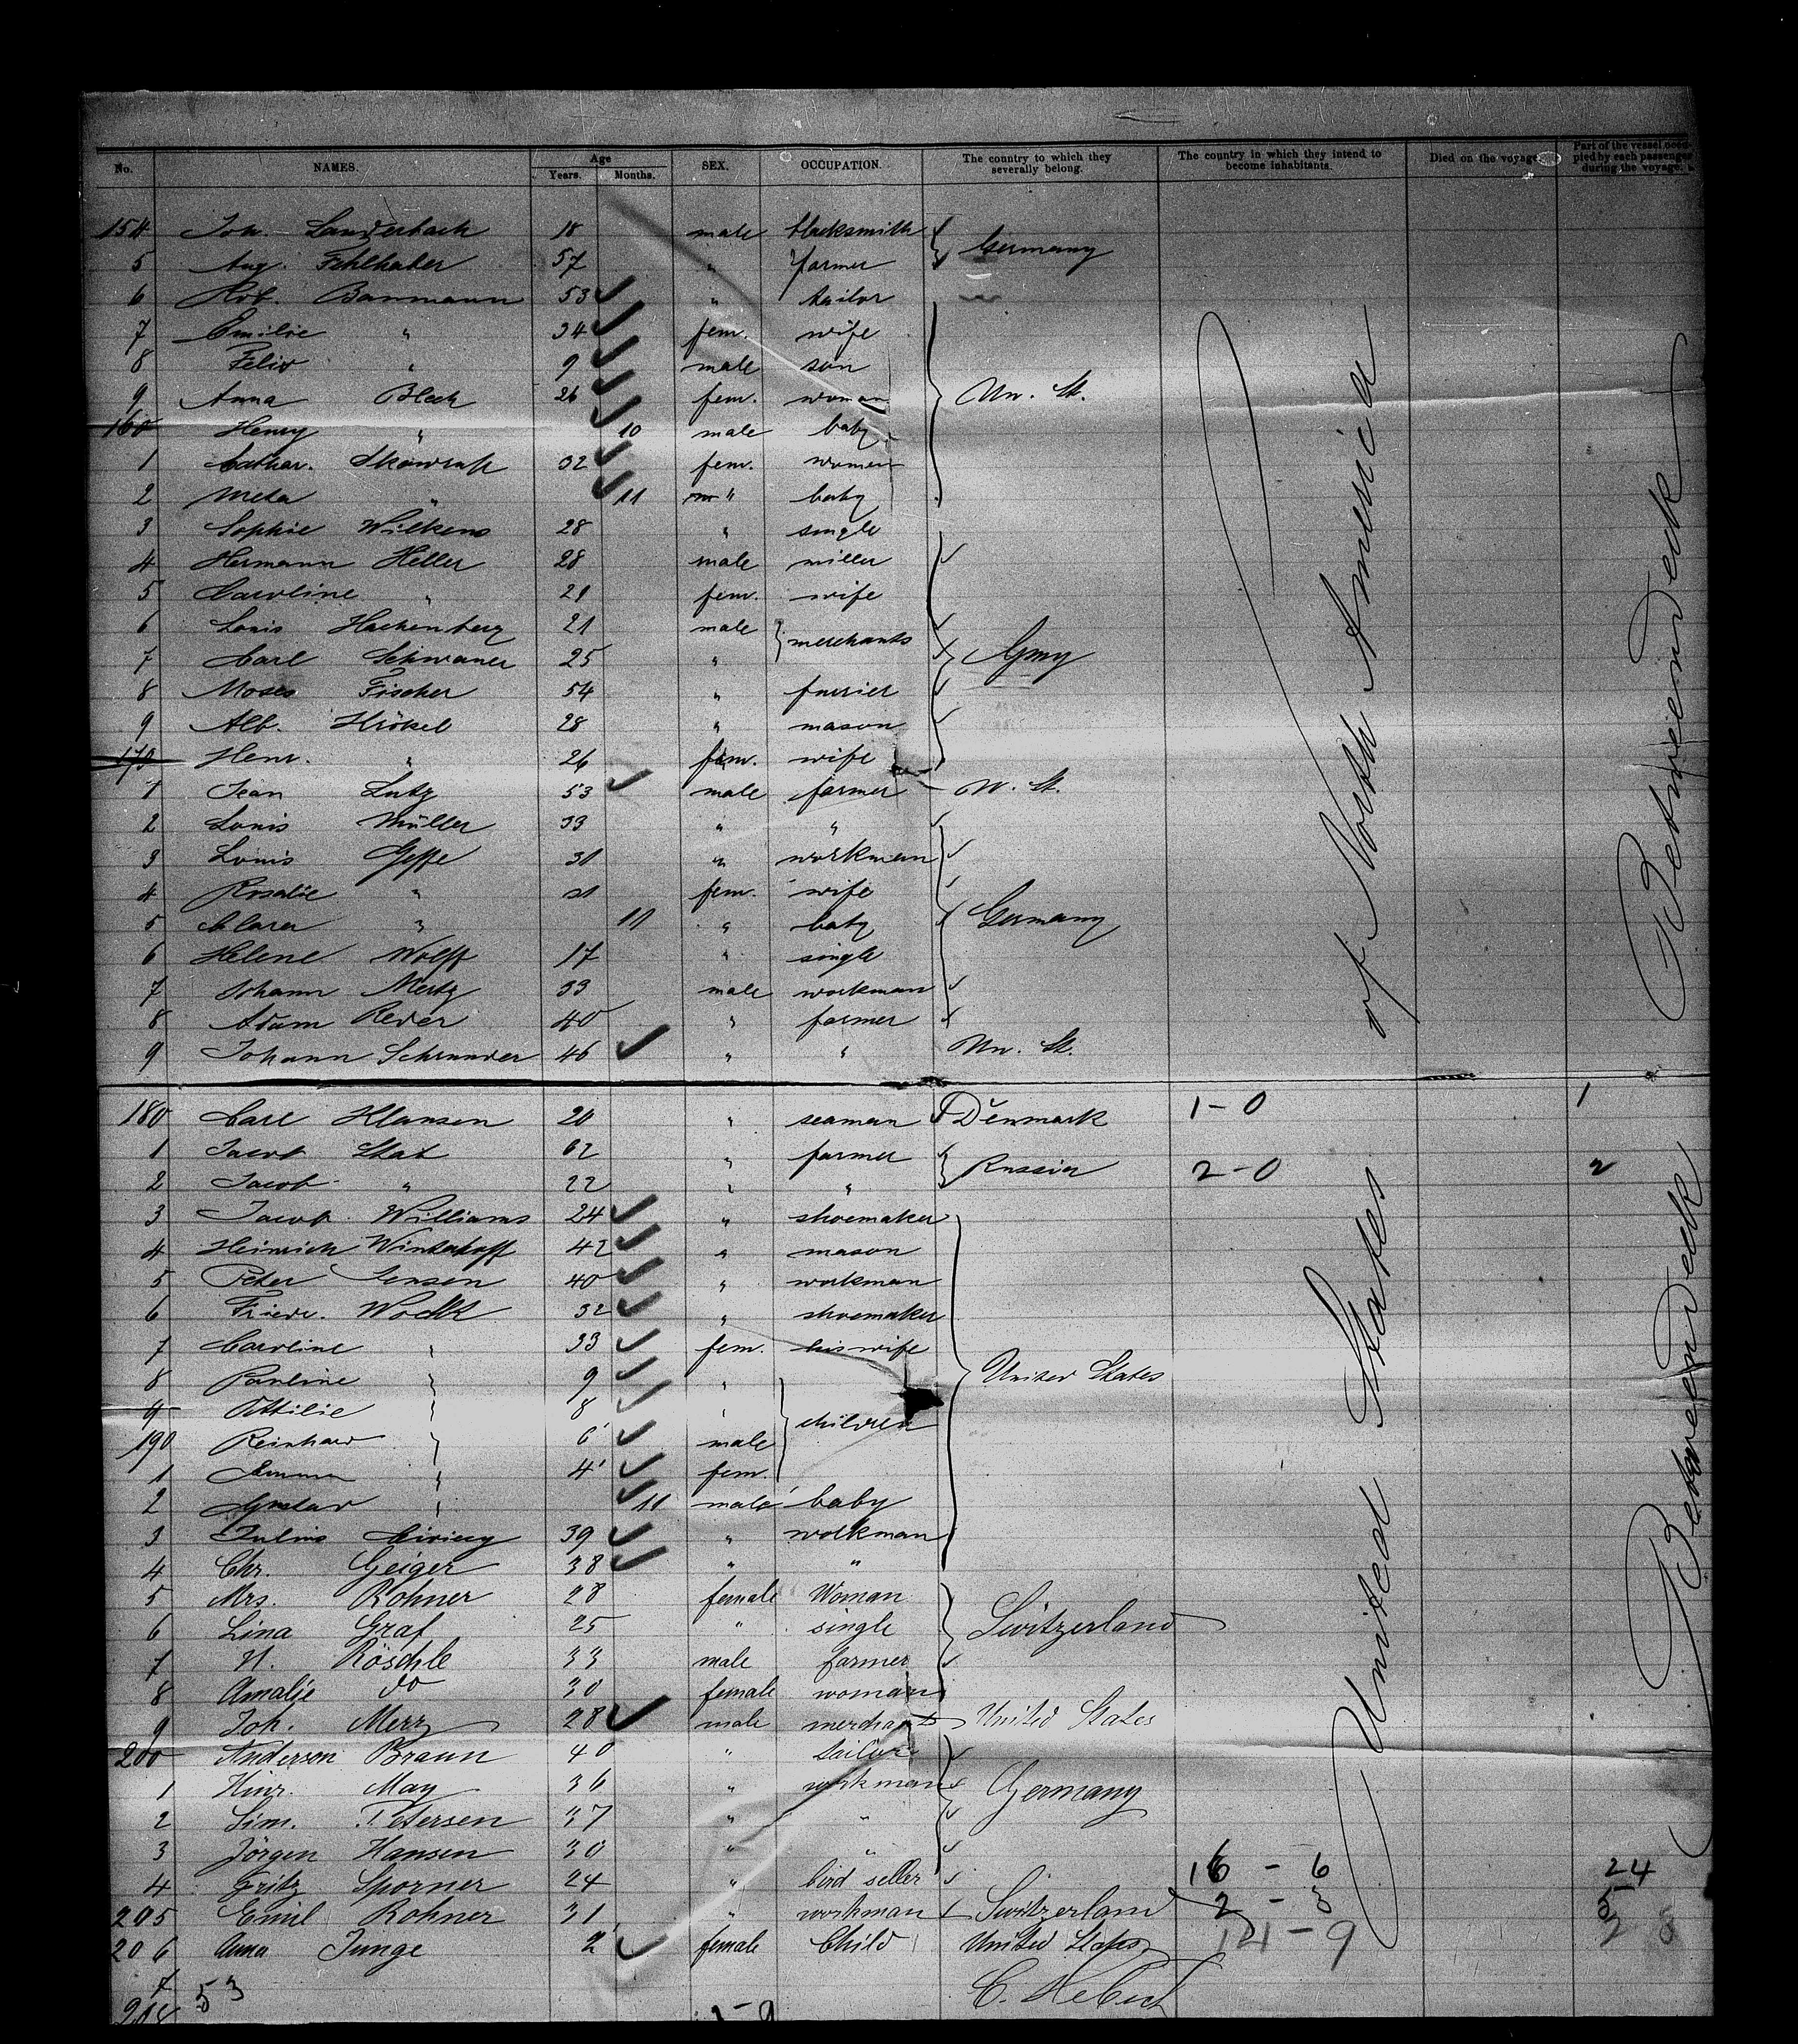 No. NAMES. Age Years. Months. SEX. OCCUPATION. The country to which they severally belong. The country in which they intend to become inhabitants. Died on the voyage. Part of the vessel occupied by each passenger during the voyage.
154 Joh. Lauderbach 18 male blacksmith Germany
5 Aug. Fehlhaber 57 " farmer
6 Rob. Baumann 53 " tailor
7 Emilie " 34 fem. wife
8 Felix " 9 male son
9 Anna Bleck 26 fem. woman Un. St.
160 Henry " 10 male baby
1 Cathar. 32 fem. woman
2 Meta " 11 " baby
3 Sophie Wilkens 28 " single
4 Hermann Heller 28 male miller
5 Caroline " 21 fem. wife
6 Louis Hachenberg 21 male merchants
7 Carl Schwaner 25 " Gmy
8 Moses Fischer 54 " furrier
9 Alb. 28 " mason
170 Henr. " 26 fem. wife
1 Jean Lutz 53 male farmer U. St.
2 Louis Müller 33 " "
3 Louis 31 " workman
4 Rosalie " 21 fem. wife
5 Clara " 11 " baby Germany
6 Helene Wolff 17 " single
7 Johann Mertz 33 male workman
8 Adam Reder 40 " farmer
9 Johann Schrunder 46 " " Un. St.
180 Carl Klausen 20 " seaman Denmark 1-0 1
1 Jacob 62 " farmer Russia 2-0 2
2 Jacob " 22 " "
3 Jacob Williams 24 " shoemaker
4 Heinrich Winterhoff 42 " mason
5 Peter Jensen 40 " workman
6 Frieds. 32 " shoemaker
7 Caroline " 33 fem. his wife
8 Pauline " 9 " United States
9 Ottilie " 8 " children
190 Reinhard " 6 male
1 Emma " 4 fem.
2 Gustav " 11 male baby
3 Julius 39 " workman
4 Chr. Geiger 38 " "
5 Mrs. Rohner 28 female Woman
6 Lina Graf 25 " single Switzerland
7 N. Röschle 33 male farmer
8 Amalie do 30 female woman
9 Joh. Merz 28 male merchant United States
200 Anderson Braun 40 " tailor
1 Hinr. May 36 " workman Germany
2 Sim. Petersen 37 " "
3 Jörgen Hansen 30 " "
4 Fritz Sporner 24 " bird seller 16-6 24
205 Emil Rohner 31 " workman Switzerland
206 Anna Junge 2 female Child United States 14-9
7 53
208
United States of North America
Between Deck
Between Deck